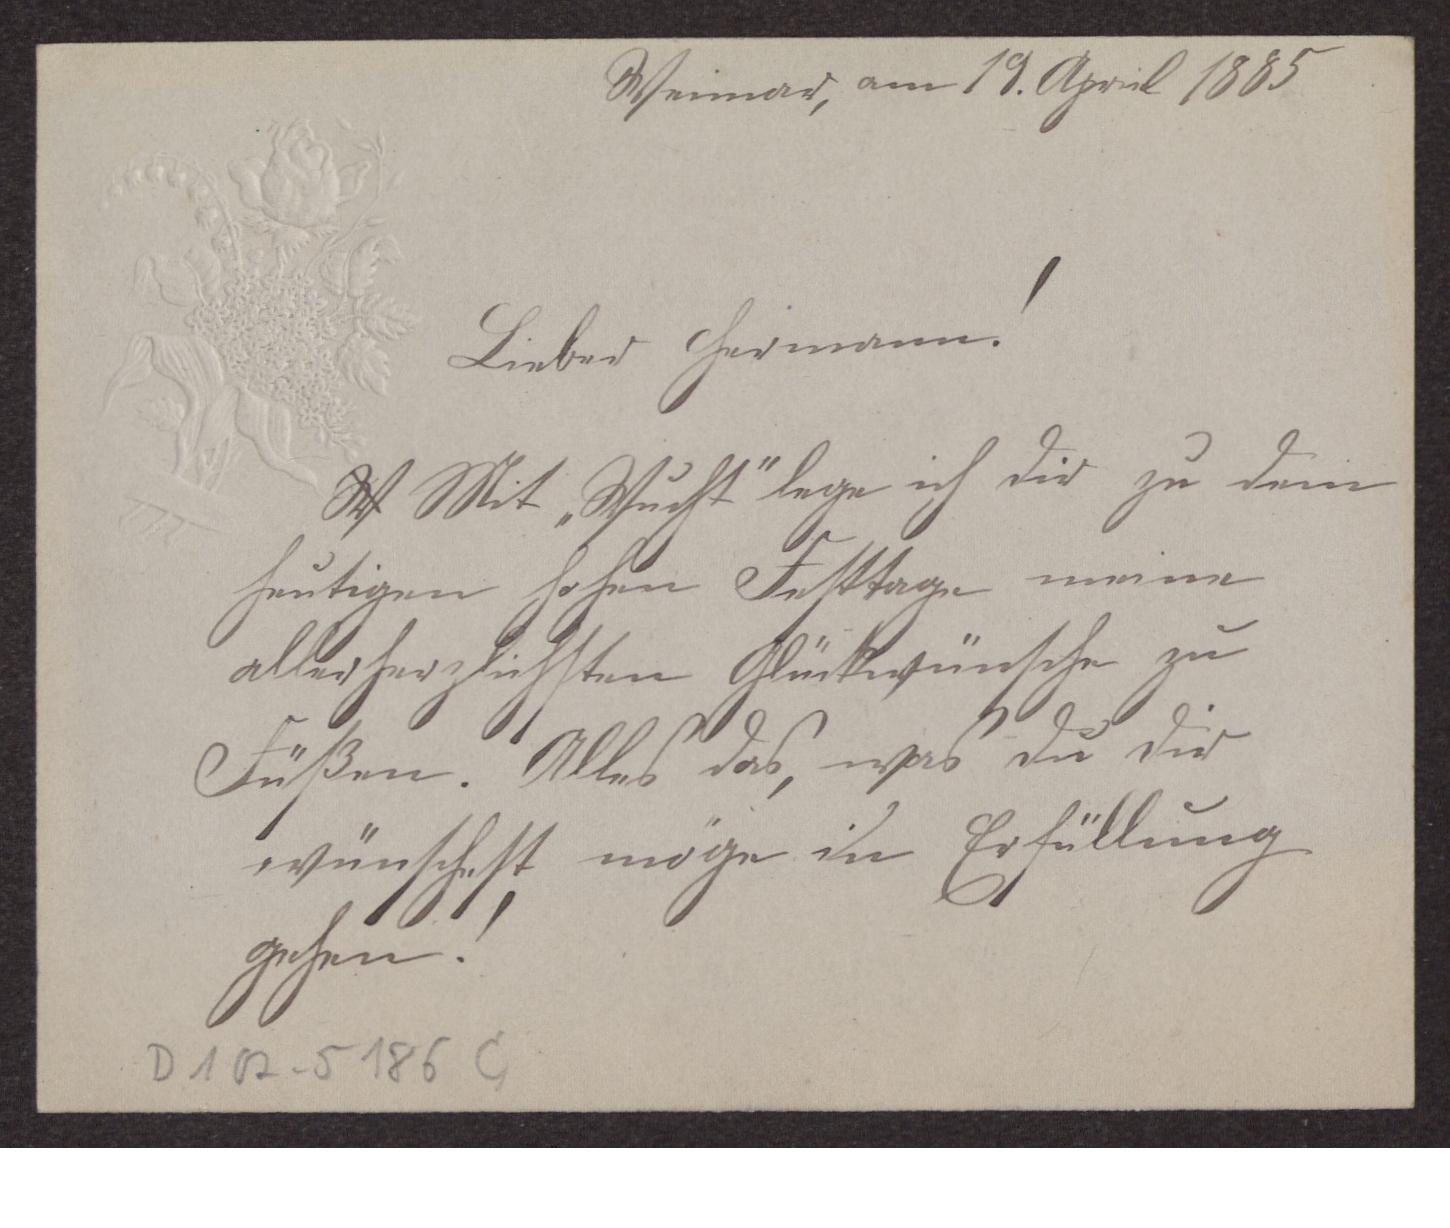 Weimar, am 19. April 1885
Lieber Hermann!
Mit „Wucht" lege ich dir zu dem
heutigen hohen Festtage meine
allerherzlichsten Glückwünsche zu
Füßen. Alles das, was du dir
wünschest möge in Erfüllung
gehen!
D 102-5186 G